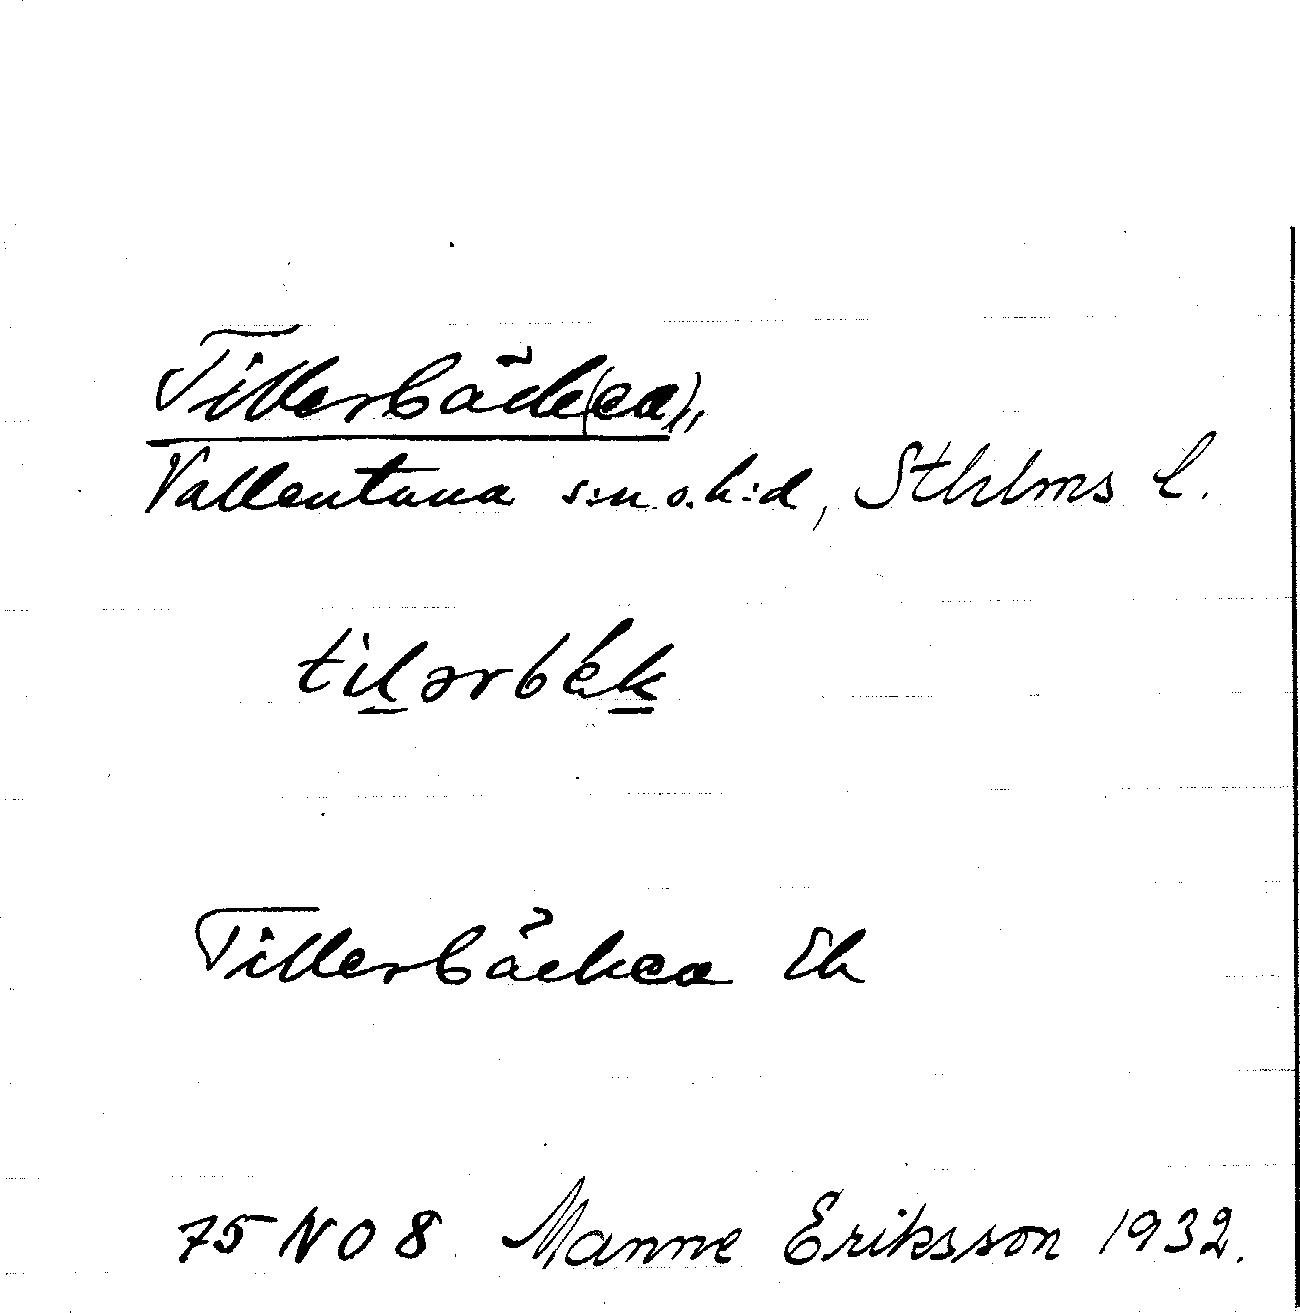 Tillerbäck(ea),
Vallentuna s:n o. h:d, Sthlms l.
tilərbék
Tillerbäckea Ek
75 NO 8 Manne Eriksson 1932.